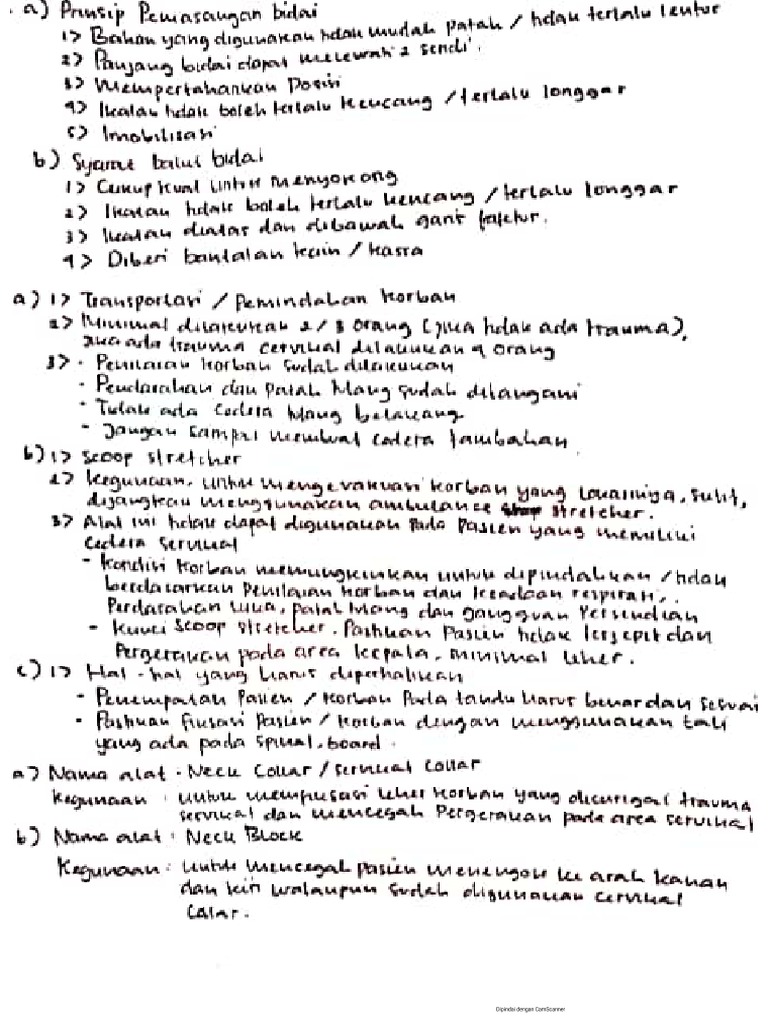 a) Prinsip Pemasangan bidai
1> Bahan yang digunakan tidak mudah patah / tidak terlalu lentur
2> Panjang bidai dapat melewati 2 sendi.
3> Mempertahankan Posisi
4> Ikatan tidak boleh terlalu kencang / terlalu longgar
5> Imobilisasi
b) Syarat balut bidai
1> Cukup kuat untuk menyokong
2> Ikatan tidak boleh terlalu kencang / terlalu longgar
3> Ikatan diatas dan dibawah garis faktur.
4> Diberi bantalan kain / kassa
a) 1> Transportasi / Pemindahan korban
2> Minimal dilakukan 2/3 orang (jika tidak ada trauma),
jika ada trauma cervikal dilakukan 4 orang
3> - Penilaian korban sudah dilakukan
- Pendarahan dan Patah tulang sudah ditangani
- Tidak ada cedera tulang belakang
- Jangan sampai membuat cedera tambahan
b) 1> Scoop stretcher
2> kegunaan, untuk mengevakuasi korban yang lokasinya, sulit,
dijangkau menggunakan ambulance stretcher.
3> Alat ini tidak dapat digunakan Pada Pasien yang memiliki
cedera servikal
- kondisi korban memungkinkan untuk dipindahkan / tidak
berdasarkan Penilaian korban dan keadaan respirasi,
Perdarahan luka, patah tulang dan gangguan Persendian
- kunci scoop stretcher. Pastikan Pasien tidak terjepit dan
Pergerakan pada area kepala, minimal leher.
c) 1> Hal - hal yang harus diperhatikan
- Penempatan Pasien / korban Pada tandu harus benar dan sesuai
- Pastikan fiksasi Pasien / korban dengan menggunakan tali
yang ada pada spinal board.
a) Nama alat : Neck Collar / servikal collar
Kegunaan : untuk memfiksasi leher korban yang dicurigai trauma
servikal dan mencegah Pergerakan pada area servikal
b) Nama alat : Neck Block
Kegunaan : untuk mencegah pasien menengok ke arah kanan
dan kiri walaupun sudah digunakan cervikal
calar.
Dipindai dengan CamScanner